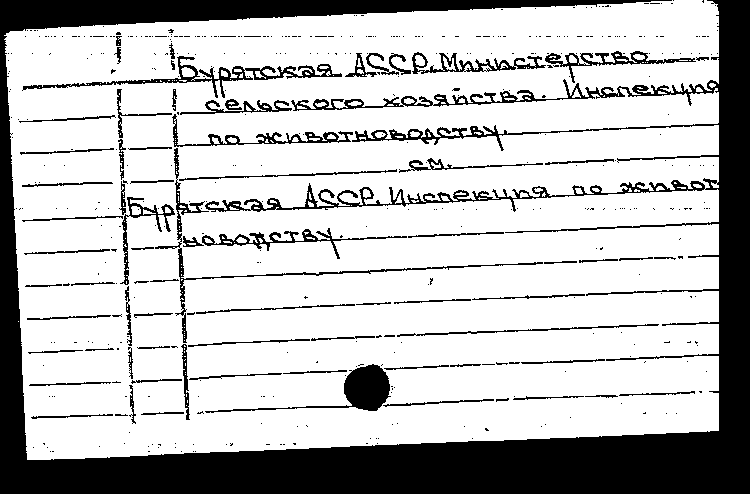 Бурятская АССР. Министерство
сельского хозяйства. Инспекция
по животноводству.
см.
Бурятская АССР. Инспекция по живот-
новодству.